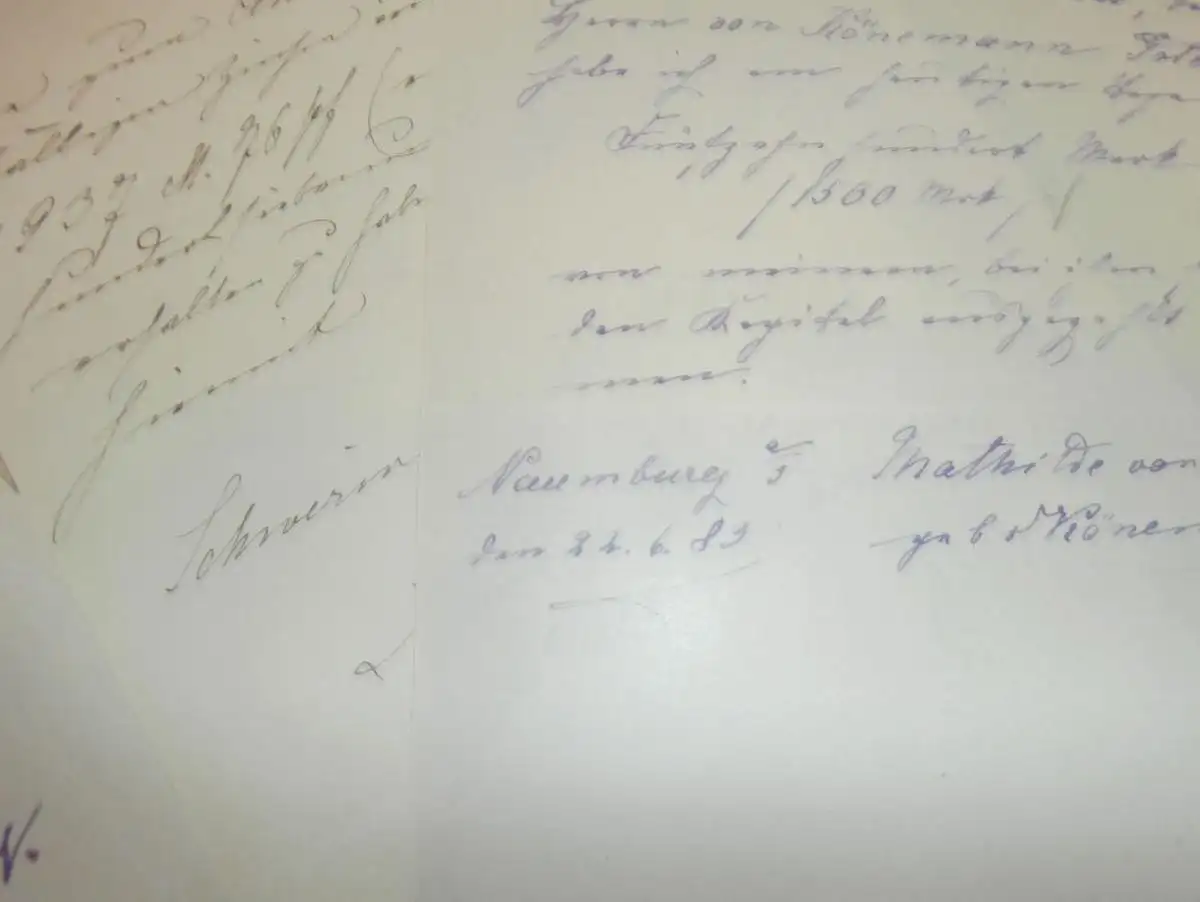 zum
ziehen
937 M. 76 Pf (
hundert sieben
erhalten zu habe
hiermit
Schwerin
Herrn von Könemann
habe ich am heutigen Tage
Fünfzehn hundert Mark
/1500 Mrk/
von meinem, bei ihm
den Kapital ausgezahlt
men.
Naumburg a/S
den 22. 6. 83
Mathilde von
geb v Könem
N.